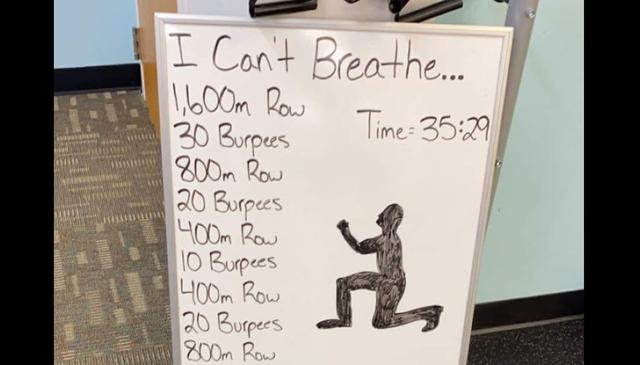 I Can't Breathe...
1,600m Row
Time= 35:29
30 Burpees
800m Row
20 Burpees
400m Row
10 Burpees
400m Row
20 Burpees
800m Row